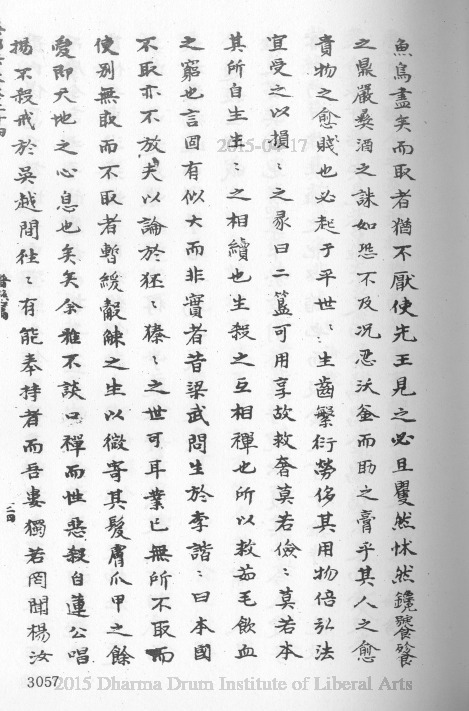 魚鳥盡矣而取者猶不厭使先王見之必且瞿然怵然鑱饕餮
之鼎嚴彝酒之誅如恐不及況忍沃釜而助之膏乎其人之愈
貴物之愈賤也必起于平世〻生齒繁衍勞侈其用物倍弘法
宜受之以損〻之彖曰二簋可用享故救奢莫若儉〻莫若本
其所自生生〻之相續也生殺之互相禪也所以救茹毛飲血
之窮也言固有似大而非實者昔梁武問生於李諧〻曰本國
不取亦不放夫以論於狉〻獉〻之世可耳業已無所不取而
使別無取而不取者暫緩觳觫之生以微寄其髮膚爪甲之餘
愛即天地之心息也矣矣余雅不談口禪而性惡殺自蓮公唱
揚不殺戒於吳越間徃〻有能奉持者而吾婁獨若罔聞楊汝
二四
3057
2015-04-17
2015 Dharma Drum Institute of Liberal Arts